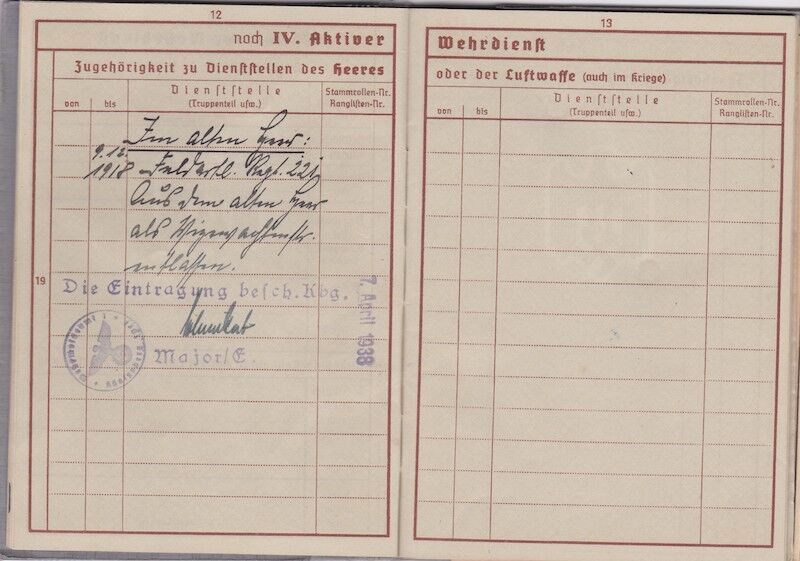 12
noch IV. Aktiver
Zugehörigkeit zu Dienststellen des Heeres
von
bis
Dienststelle
(Truppenteil usw.)
Stammrollen-Nr.
Ranglisten-Nr.
Im alten Heer:
9.12.
1918
Feldartl. Regt. 221
Aus dem alten Heer
als
entlassen.
19
Die Eintragung besch. Kbg.
7. April 1938
Major/E.
13
Wehrdienst
oder der Luftwaffe (auch im Kriege)
von
bis
Dienststelle
(Truppenteil usw.)
Stammrollen-Nr.
Ranglisten-Nr.